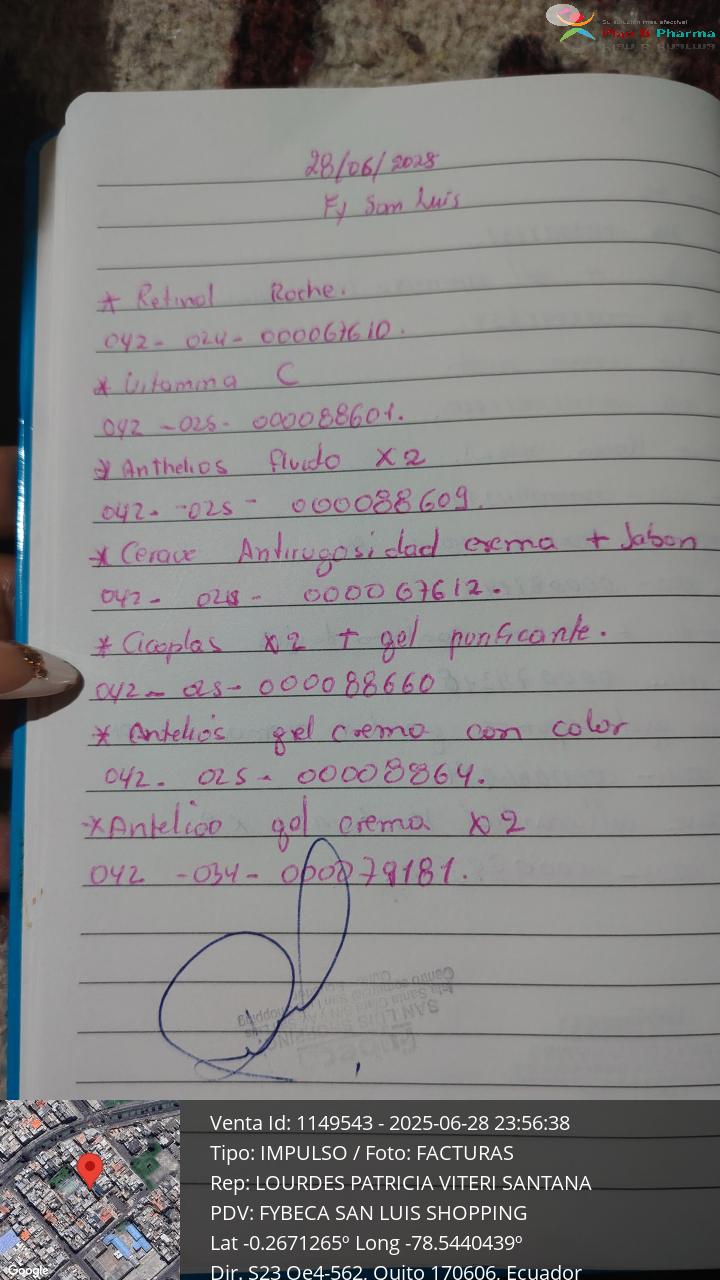 Su solución más efectiva!
Plan B Pharma
28/06/2025
Fy San Luis
* Retinol Roche.
042- 024- 000067610.
* Vitamina C
042 -025- 000088601.
* Anthelios fluido x2
042- -025- 000088609.
* Cerave Antirugosidad crema + Jabon
042- 024- 000067612.
* Cicaplas x2 + gel purificante.
042- 025- 000088660
* Antelios gel crema con color
042. 025- 00008864.
* Antelios gel crema x2
042 -034- 000079181.
Fybeca
SAN LUIS SHOPPING
Venta Id: 1149543 - 2025-06-28 23:56:38
Tipo: IMPULSO / Foto: FACTURAS
Rep: LOURDES PATRICIA VITERI SANTANA
PDV: FYBECA SAN LUIS SHOPPING
Lat -0.2671265º Long -78.5440439º
Dir. S23 Oe4-562, Quito 170606, Ecuador
Google